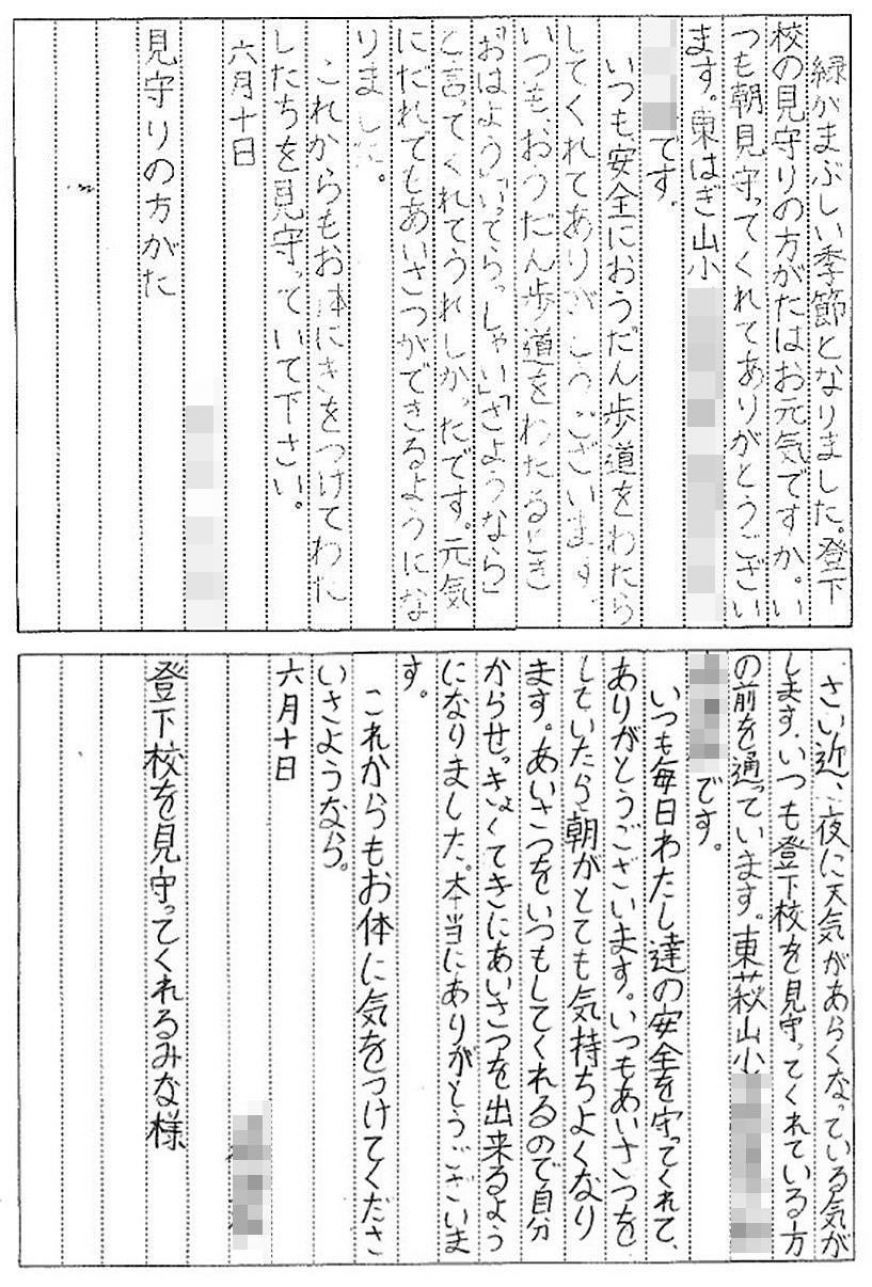 緑がまぶしい季節となりました。登下
校の見守りの方がたはお元気ですか。い
つも朝見守ってくれてありがとうござい
ます。東はぎ山小
です。
いつも、安全におうだん歩道をわたら
してくれてありがとうございます。
いつも、おうだん歩道をわたるとき
「おはよう」「いってらっしゃい」「さようなら」
と言ってくれてうれしかったです。元気
にだれでもあいさつができるようにな
りました。
これからもお体にきをつけてわた
したちを見守っていて下さい。
六月十日
見守りの方がた
さい近、夜に天気があらくなっている気が
します。いつも登下校を見守ってくれている方
の前を通っています。東萩山小
です。
いつも毎日わたし達の安全を守ってくれて、
ありがとうございます。いつもあいさつを
していたら朝がとても気持ちよくなり
ます。あいさつをいつもしてくれるので自分
からせっきょくてきにあいさつを出来るよう
になりました。本当にありがとうございま
す。
これからもお体に気をつけてくださ
いさようなら。
六月十日
登下校を見守ってくれるみな様